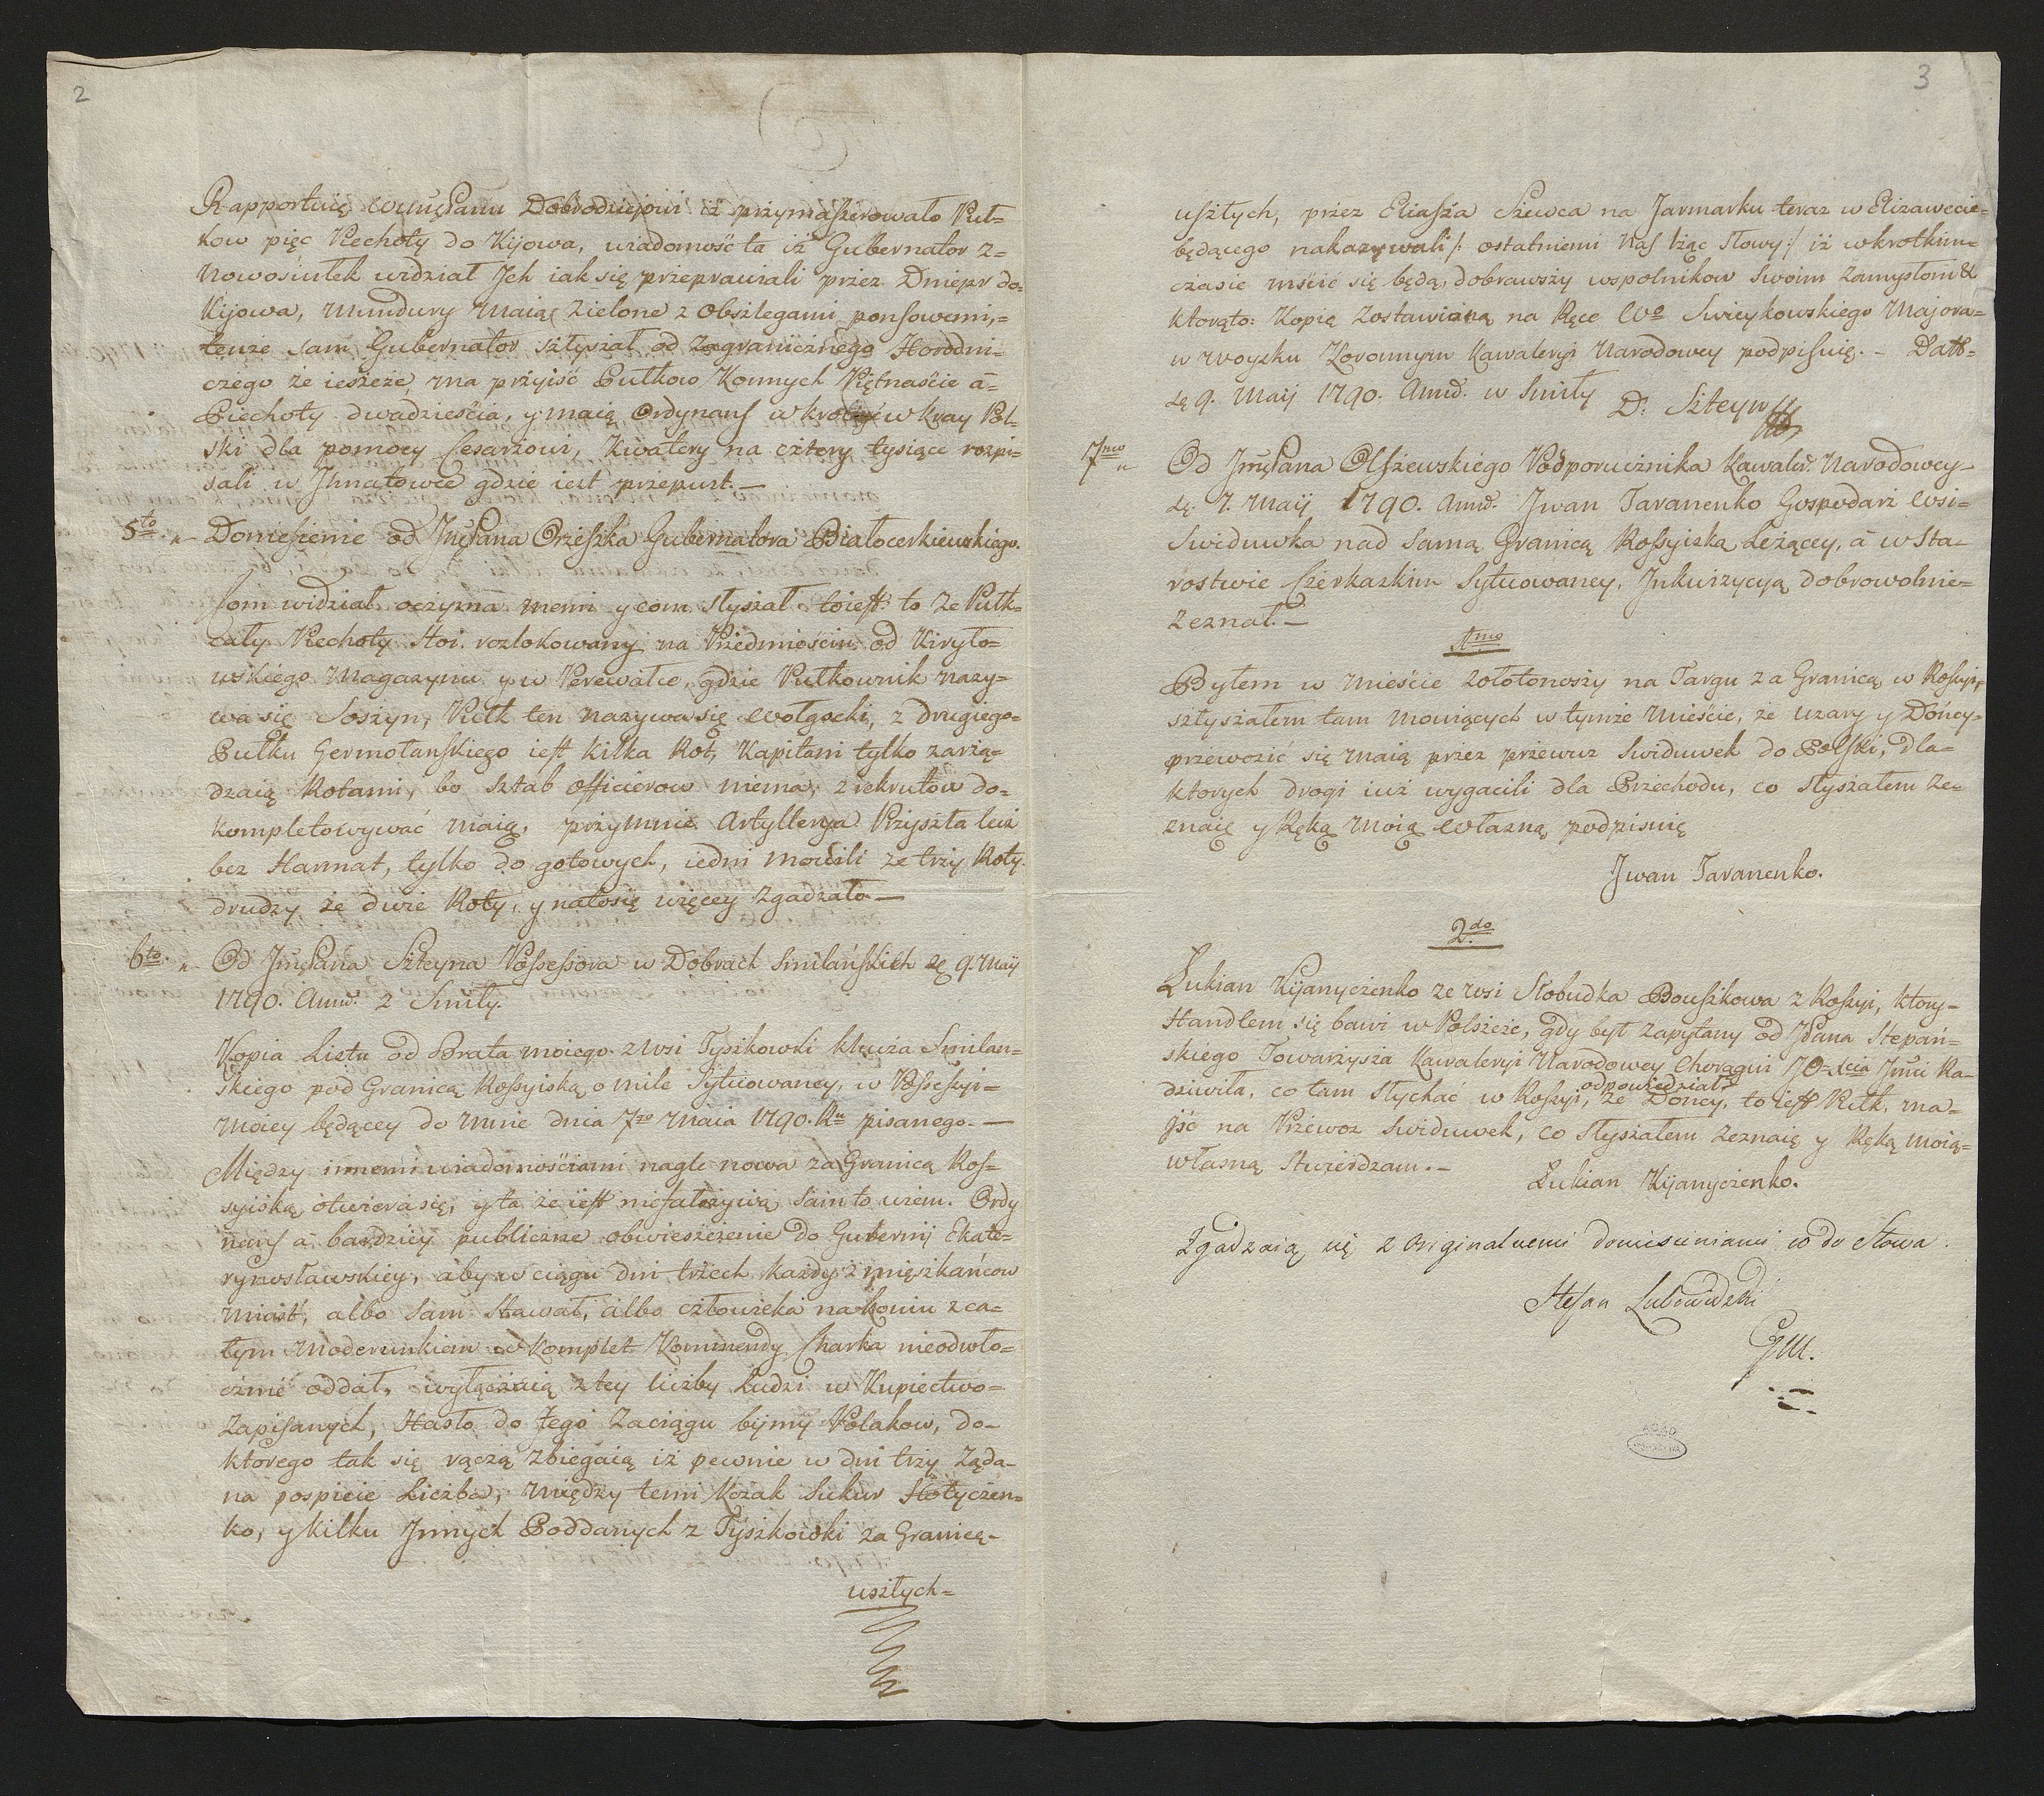 2
Rapportuię WmęPanu Dobrodziejowi iż przymaszerowało Puł=
kow pięc Piechoty do Kijowa, wiadomość ta iż Gubernator z=
Nowosiułek widział Jch iak się przeprawiali przez Dniepr do=
Kijowa, Mundury Maią Zielone z Obszlegami ponsowemi,=
tenze sam Gubernator szłyszał od Zagranicznego Horodni=
czego że ieszcze ma przyiść Pułkow Konnych Piętnaście a=
Piechoty dwadzieścia, y maią Ordynans w kray Pol=
ski dla pomocy Cesarzowi, Kwatery na cztery tysiące rozpi=
sali w Jhnatowce gdzie iest przepust.—
5to „ Doniesienie od JmęPana Orzeszka Gubernatora Białocerkiewskiego.
Com widział oczyma memi y com słyszał toiest: to że Pułk=
cały Piechoty stoi rozlokowany na Przedmieściu od Kiryło=
wskiego Magazynu y w Perewałce, gdzie Pułkownik nazy=
wa się Soszyn, Pułk ten nazywa się Wołgocki, z drugiego=
Pułku Germołanskiego iest kilka Rot, Kapitani tylko zarzą=
dzaią Rotami, bo sztab officierow niema, z rekrutow do=
kompletowywać maią, przymnie Artyllerya Przyszła lecz
bez Harmat, tylko do gotowych, iedni mowili że trzy Roty
drudzy że dwie Roty, y natosię więcey zgadzało—
6to. „ Od JmęPana Szteyna Possessora w Dobrach Smilańskich dę 9. Maij
1790. Annd. z Smiły.
Kopia Listu od Brata moiego z Wsi Tyszkowki klucza Smilan=
skiego pod Granicą Rossyiską o mile sytuowaney, w Possessyi=
Moiey będącey do mnie dnia 7go Maia 1790. Ru pisanego.—
Między innemi wiadomościami nagle nowa za Granicą Ros=
syiską otwiera się, y ta że iest niefałszywą sam to wiem. Ordy
nans a bardziey publiczne obwieszczenie do Gubernij Ekate=
rynosławskiey, aby w ciągu dni trzech każdy z mięszkańcow
Miast, albo sam stawał, albo człowieka na koniu z ca=
łym Moderunkiem w komplet Kommendy Charka nieodwło=
cznie oddał, wyłączaią z tey liczby Ludzi w Kupiectwo=
Zapisanych, Hasło do tego Zaciągu biymy Polakow, do=
ktorego tak się rączą zbiegaią iż pewnie w dni trzy Żąda=
na pospieie Liczba, między temi Kozak Sukur Hołyczen=
ko, y kilku Jnnych Poddanych z Tyszkowki za Granicę=
uszłych=
3
uszłych, przez Eliasza Szewca na Jarmarku teraz w Elizawecie=
będącego nakazywali /: ostatniemi Nas lżąc słowy:/ iż wkrotkim=
czasie mścić się będą, dobrawszy wspolnikow swoim zamysłom &
ktorąto: Kopią Zostawioną na Ręce Wo Swieykowskiego Majora=
w woysku Koronnym Kawaleryi Narodowey podpisuię.— Datt=
dę 9. Maij 1790. Annd. w Smiły
D: Szteyn
7mo „ Od JmęPana Olszewskiego Podporucznika Kawaler. Narodowey=
dę. 7. Maij 1790. Annd. Jwan Taranenko Gospodarz Wsi=
Swiduwka nad samą Granicą Rossyiską Leżącey, a w Sta=
rostwie Czerkaskim Sytuowaney, Jnkwizycyją dobrowolnie=
Zeznał.—
1mo
Byłem w mieście Zołotonoszy na Targu za Granicą w Rossyi,
szłyszałem tam mowiących w tymże Mieście, że Uzary y Dońcy=
przewozić się maią przez przewuz Swiduwek do Polski, dla=
ktorych drogi iuż wygacili dla Przechodu, co słyszałem Ze=
znaię y Ręką Moią Własną podpisuię
Jwan Taranenko.
2do
Łukian Kijanyczenko ze wsi Słobudka Bouszkowa z Rossyi, ktory=
Handlem się bawi w Polszcze, gdy był zapytany od JPana Stepań=
skiego Towarzysza Kawaleryi Narodowey Chorągwi JO=Xcia Jmci Ra=
dziwiła, co tam słychać w Rossyi, odpowiedział że Doncy, to iest Pułk, ma=
jść na Przewoz Swiduwek, co słyszałem Zeznaię y Ręką moią=
własną stwierdzam.—
Łukian Kijanyczenko.
Zgadzaią się z Originalnemi doniesieniami co do słowa.
Stefan Lubowidzki
GM.
AGAD
WARSZAWA